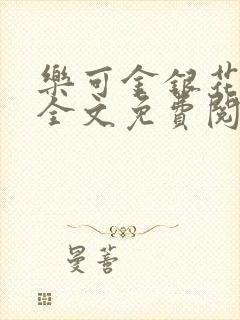 樂可金銀花
全文免費閱
曼蕾